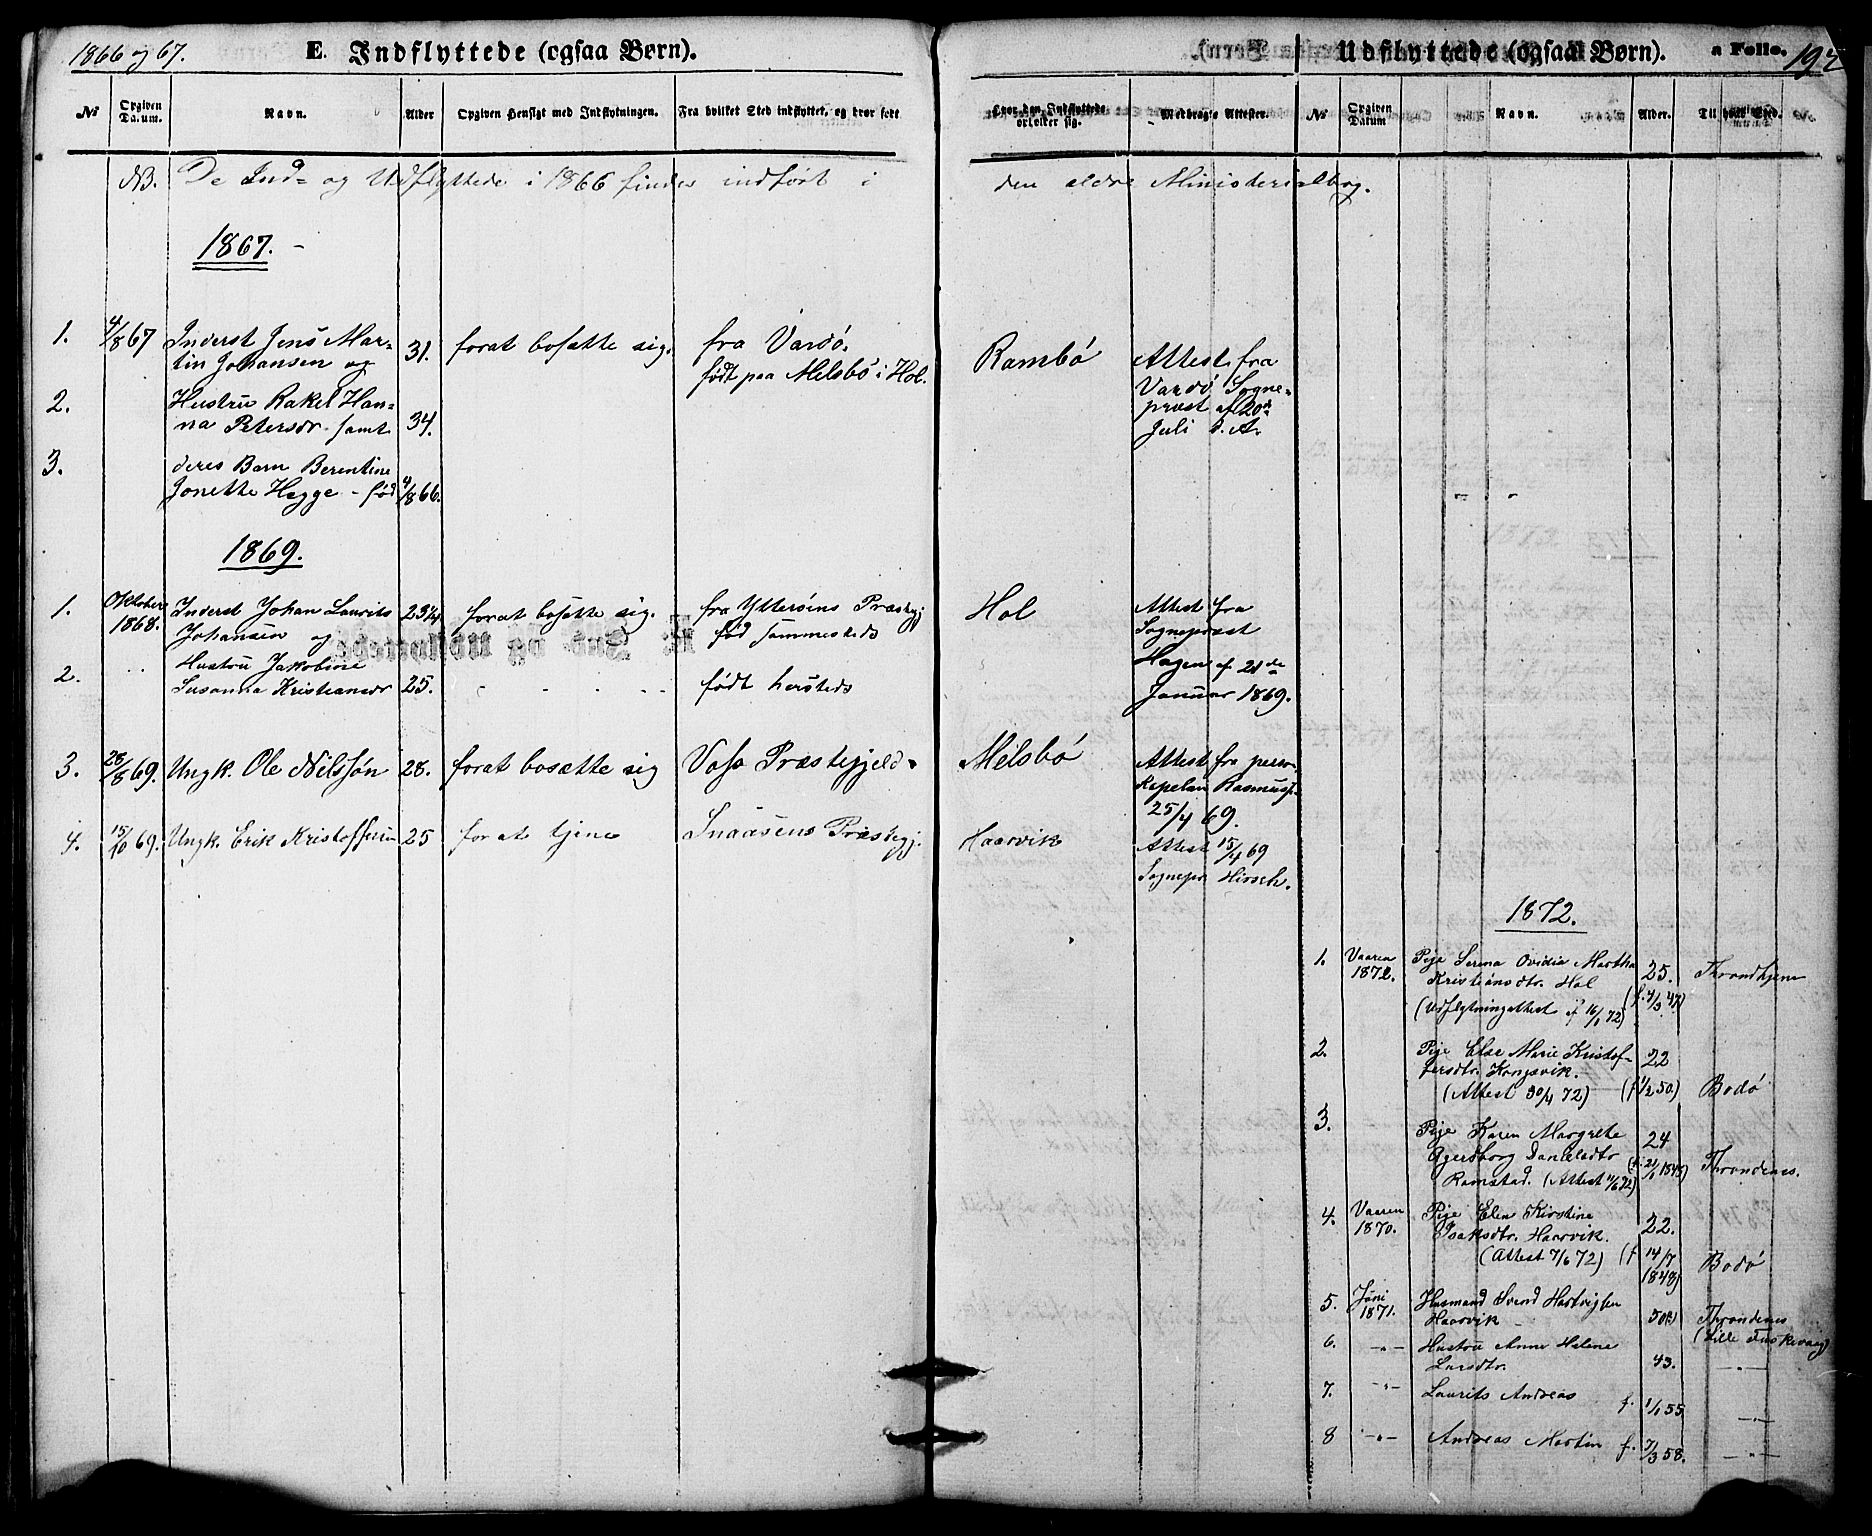 1866 og 67.
E. Indflyttede (ogsaa Børn).
Udflyttede (ogsaa Børn).
a Folio.
No
Opgiven Datum.
Navn.
Alder
Opgiven Hensigt med Indflytningen.
Fra hvilket Sted indflyttet, og hvor født
Hvor den Indflyttede opholder sig.
Medbragte Attester.
No
Opgiven Datum
Navn.
Alder.
Til hvilket Sted.
NB. De Ind- og Udflyttede i 1866 findes indført i den ældre Ministerialbog.
1867.
1. 4/8 67 Inderst Jens Mar- 31. forat bosætte sig. fra Vardö. Rambö Attest fra
tin Johansen og født paa Melsbö i Hol. Vardö Sogne-
2. Hustru Rakel Han- 34. præst af 20de
na Petersdr. samt Juli d. A.
3. deres Barn Berentine
Jonette Hegge - fød 4/8 66.
1869.
1. Oktober 1868. Inderst Johan Laurits 23 1/4 forat bosætte sig. fra Ytterøens Præstegj Hol Attest fra
Johansen og fød sammesteds Sognepræst
2. Hustru Jakobine Hagen af 21de
Susanna Kristiansdr 25. født hersteds Januar 1869.
3. 28/8 69. Ungk. Ole Nilssön 28. forat bosætte sig Voss Præstegjeld. Melsbö Attest fra pers.
Kapelan Rasmuss.
25/4 69.
4. 15/10 69. Ungk. Erik Kristoffersen 25 for at tjene Snaasens Præstegj. Haarvik Attest 15/4 69
Sognepr. Hirsch.
1872.
1. Vaaren 1872. Pige Serina Ovidia Martha 25. Throndhjem
Kristiansdtr. Hol
(Udflytningsattest af 16/1 72) (f. 4/3 47)
2. Pige Else Marie Kristof- 22
fersdtr. Kongsvik.
(Attest 30/4 72) (f 1/2 50) Bodö
3. Pige Karen Margrete 24
Ogerdborg Danielsdtr (f. 21/1 1848) Throndenes.
Ramstad. (Attest 11/6 72)
4. Vaaren 1870. Pige Elen Kirstine 22.
Isaksdtr. Haarvik.
(Attest 7/6 72) (f 14/7 1848) Bodö
5. Juni 1871. Husmand Svend Hartvigsen Throndenes
Haarvik (Lille
6. -"- Hustru Anne Helene
Larsdtr. 43. -"-
7. -"- Laurits Andreas f. 1/1 55 -"-
8 -"- Andreas Martin f. 7/3 58. -"-